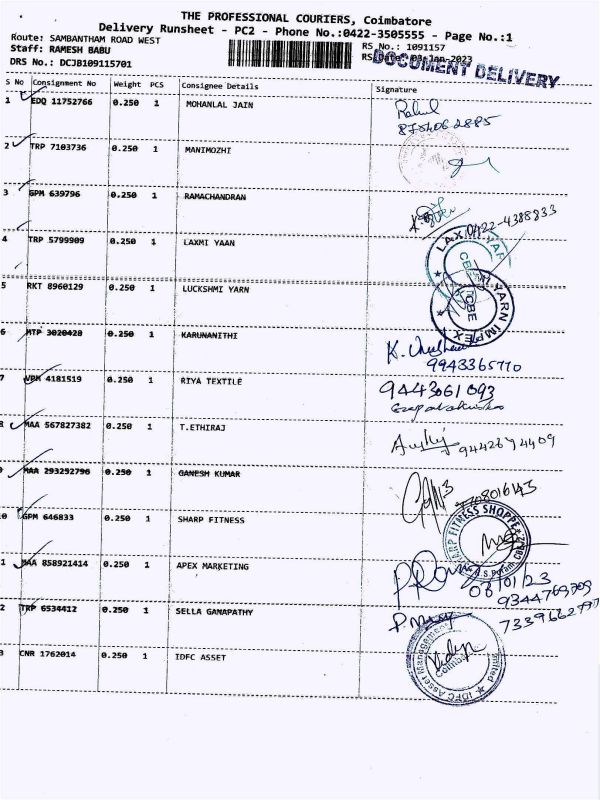 THE PROFESSIONAL COURIERS, Coimbatore
Delivery Runsheet - PC2 - Phone No.:0422-3505555 - Page No.:1
Route: SAMBANTHAM ROAD WEST
RS No.: 1091157
Staff: RAMESH BABU
RS Date: 03-Jan-2023
DRS No.: DCJB109115701
DOCUMENT DELIVERY
S No Consignment No Weight PCS Consignee Details Signature
1 EDQ 11752766 0.250 1 MOHANLAL JAIN Rahul
2 TRP 7103736 0.250 1 MANIMOZHI
3 GPM 639796 0.250 1 RAMACHANDRAN
0422-4388833
4 TRP 5799909 0.250 1 LAXMI YAAN
5 RKT 8960129 0.250 1 LUCKSHMI YARN
YARN IMPEX
6 MTP 3020420 0.250 1 KARUNANITHI
9943365770
7 VRM 4181519 0.250 1 RIYA TEXTILE
9443061093
8 MAA 567827382 0.250 1 T.ETHIRAJ
9 MAA 293252796 0.250 1 GANESH KUMAR
0 GPM 646833 0.250 1 SHARP FITNESS
SHARP FITNESS SHOPPE
1 MAA 858921414 0.250 1 APEX MARKETING
03/01/23
2 TRP 6534412 0.250 1 SELLA GANAPATHY
3 CNR 1762014 0.250 1 IDFC ASSET
IDFC Asset Management